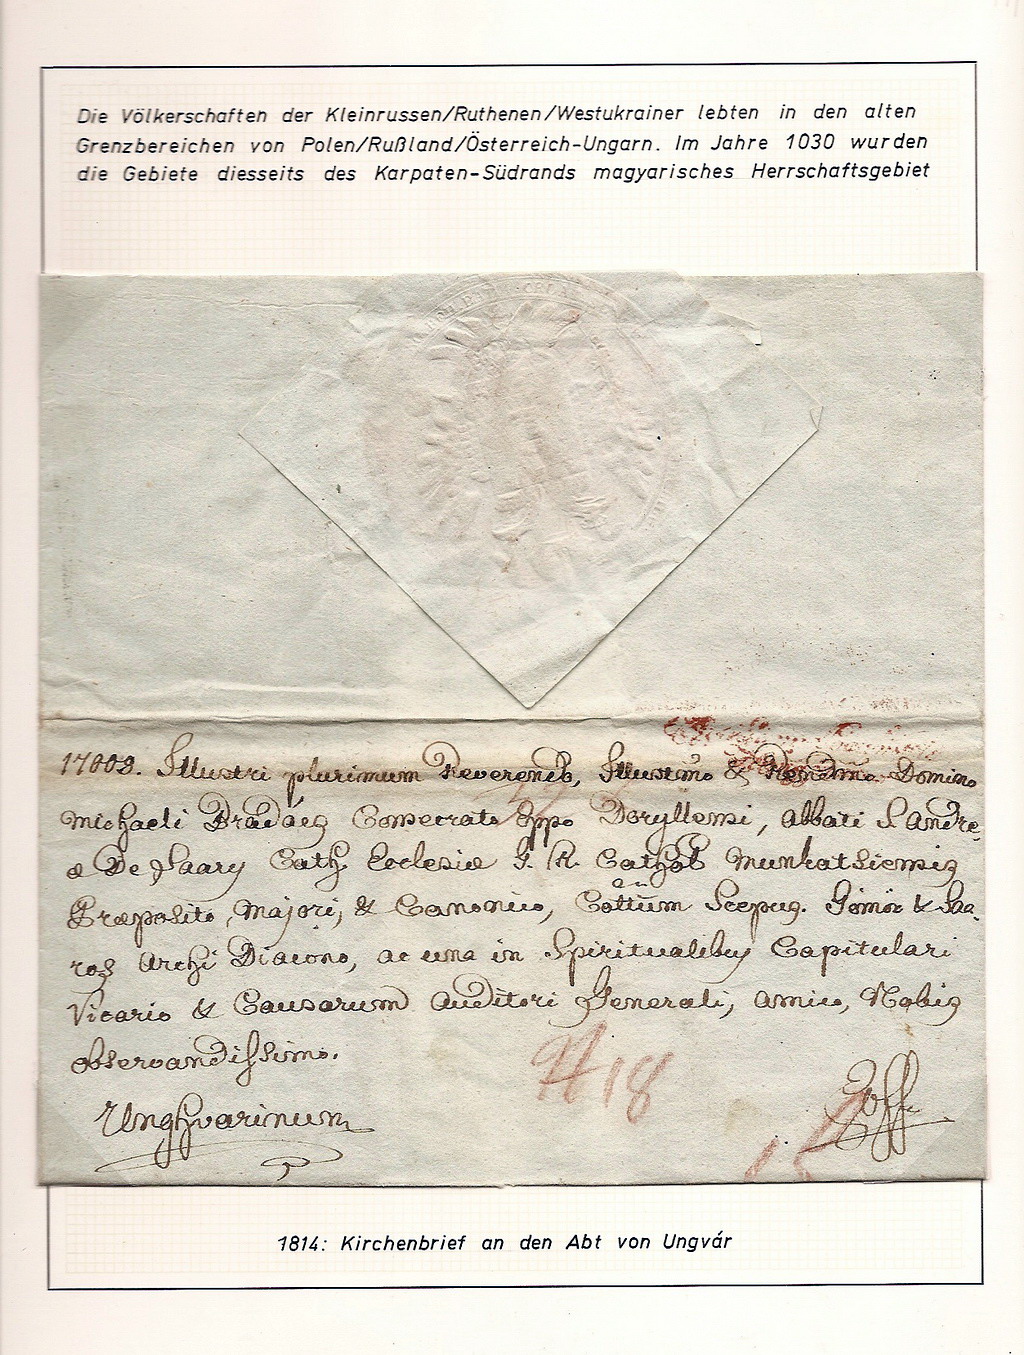 Die Völkerschaften der Kleinrussen/Ruthenen/Westukrainer lebten in den alten
Grenzbereichen von Polen/Rußland/Österreich-Ungarn. Im Jahre 1030 wurden
die Gebiete diesseits des Karpaten-Südrands magyarisches Herrschaftsgebiet
Illustri plurimum Reverendo, Illustrmo & Rendmo Domino
Michaeli Bradács Consecrato Eppo Doryllensi, Abbati S. Andre
æ De Saary Cath. Ecclesiæ G. R. Cathol Munkatsiensis
Præposito Majori, & Canonico, Cottuum Scepus. Gömör & Saa-
ros Archi Diacono, ac una in Spiritualibus Capitulari
Vicario & Causarum Auditori Generali, Amico, Nobis
observandissimo.
Unghvarinum
18
1814: Kirchenbrief an den Abt von Ungvár